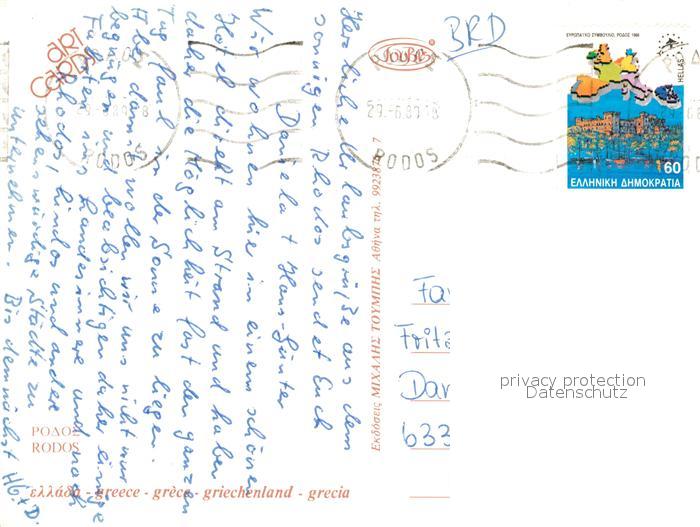 Herzliche Urlaubsgrüße aus dem
sonnigen Rhodos sendet Euch
Daniela + Hans-Günter
Wir wohnen hier in einem schönen
Hotel direkt am Strand und haben
daher die Möglichkeit fast den ganzen
Tag faul in der Sonne zu liegen.
Aber damit wollen wir uns nicht nur
begnügen und beabsichtigen daher einige
Fahrten ins Landesinnere und nach
Rhodos, Lindos und andere
sehenswürdige Städte zu
unternehmen. Bis demnächst HG+D.
art
cards
ΡΟΔΟΣ
RODOS
ελλάδα - greece - grèce - griechenland - grecia
Εκδόσεις ΜΙΧΑΛΗΣ ΤΟΥΜΠΗΣ Αθήνα τηλ. 9923874 7
BRD
29-6.89 18
RODOS
ΕΥΡΩΠΑΪΚΟ ΣΥΜΒΟΥΛΙΟ, ΡΟΔΟΣ 1988
HELLAS
60
ΕΛΛΗΝΙΚΗ ΔΗΜΟΚΡΑΤΙΑ
Fa
Fritz
Dar
633
privacy protection
Datenschutz